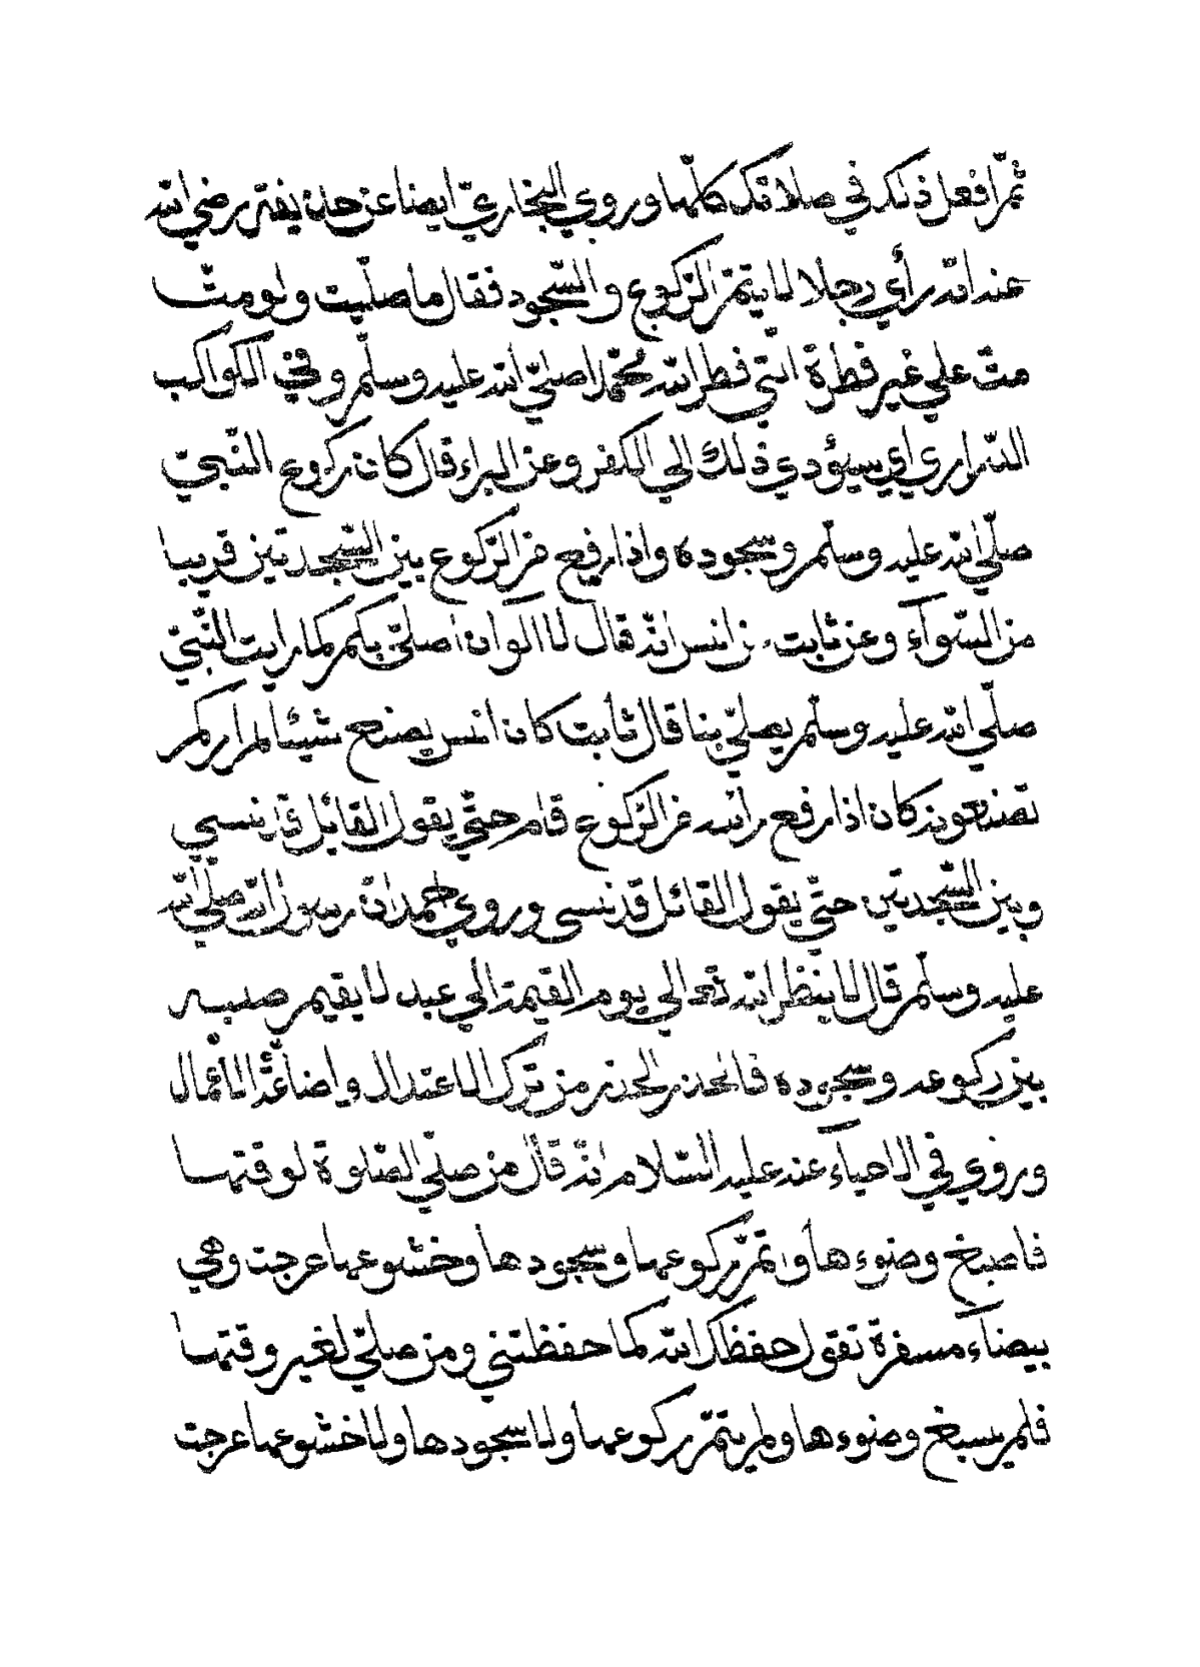 ثمّ افعل ذلك في صلاتك كلّها وروي البخاريّ ايضا عن حذيفة رضي الله
عنه انّه رأي رجلا لا يتمّ الرّكوع والسّجود فقال ما صلّيت ولو متّ
متّ علي غير فطرة الّتي فطر الله محمّدا صلّي الله عليه وسلّم وفي الكواكب
الدّراري اي سيؤدي ذلك الي الكفر وعن البراء قال كان ركوع النّبيّ
صلّي الله عليه وسلّم وسجوده واذا رفع من الرّكوع بين السّجدتين قريبا
من السّوآء وعن ثابت عن انس انّه قال لا آلوان اصلّي بكم كما رايت النّبيّ
صلّي الله عليه وسلّم يصلّي بنا قال ثابت كان انس يصنع شيئا لم اركم
تصنعونه كان اذا رفع رأسه من الرّكوع قام حتّي يقول القائل قد نسي
وبين السّجدتين حتّي يقول القائل قد نسي وروي احمد انّ رسول الله صلّي الله
عليه وسلّم قال لا ينظر الله تعالي يوم القيمة الي عبد لا يقيم صلبه
بين ركوعه وسجوده فالحذر الحذر من ترك الاعتدال واضاعة الاعمال
وروي في الاحيآء عنه عليه السّلام انّه قال من صلّي الصّلوة لوقتها
فاصبغ وضوءها واتمّ ركوعها وسجودها وخشوعها عرجت وهي
بيضآء مسفرة تقول حفظك الله كما حفظتني ومن صلّي لغير وقتها
فلم يسبغ وضوءها ولم يتمّ ركوعها ولا سجودها ولا خشوعها عرجت